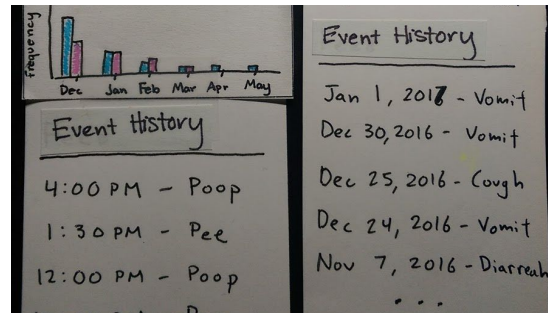 frequency
Dec Jan Feb Mar Apr May
Event History
4:00 PM - Poop
1:30 PM - Pee
12:00 PM - Poop
Event History
Jan 1, 2017 - Vomit
Dec 30, 2016 - Vomit
Dec 25, 2016 - Cough
Dec 24, 2016 - Vomit
Nov 7, 2016 - Diarreah
...